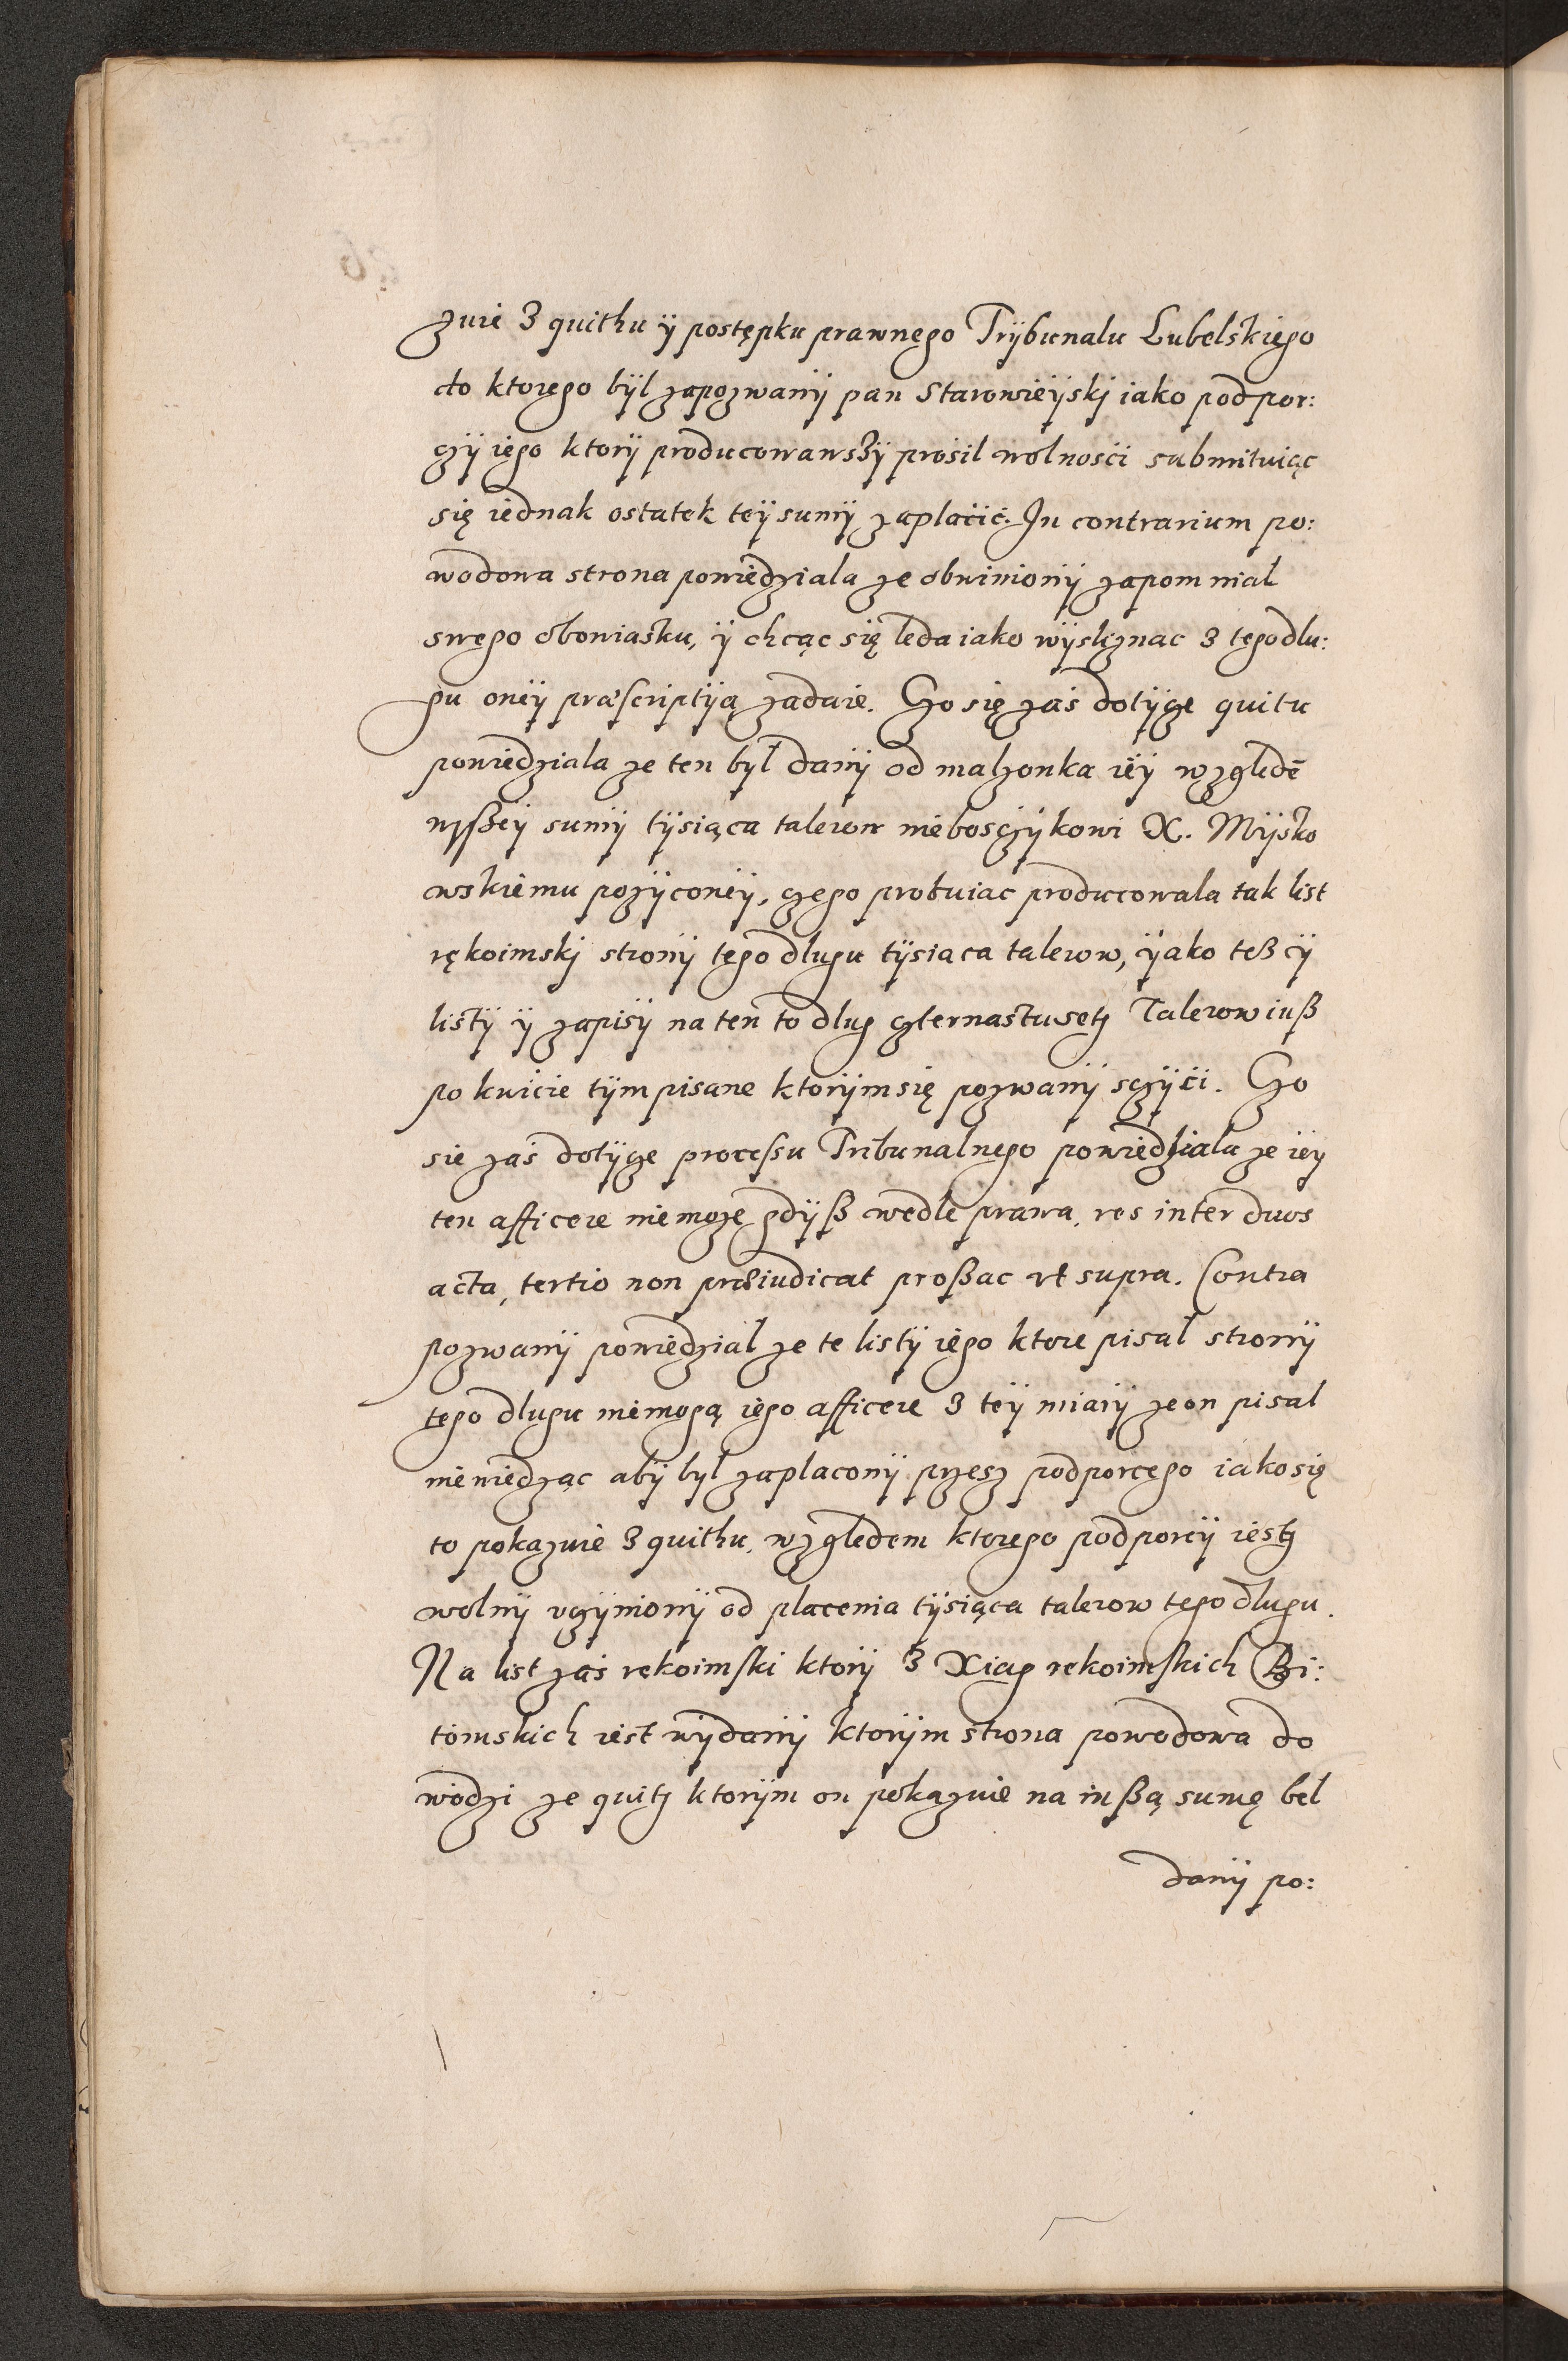 zuie z quithu ÿ postępku prawnego Trÿbunalu Lubelskiego
do ktorego bÿl zapozwanÿ pan Starowieÿskj iako podpor:
czÿ iego ktorÿ producowawszÿ prosil wolnosci submituiąc
się iednak ostatek teÿ sumÿ zaplacić. In contrarium po:
wodowa strona powiedziala ze obwinionÿ zapomnial
swego obowiasku, ÿ chcąc się leda iako wÿsliznac z tego dlu:
gu oneÿ præscriptÿą zadaie. Czo się zaś dotÿcze quitu
powiedziala ze ten bÿl danÿ od malzonka ieÿ względē
wyßeÿ sumÿ tÿsiąca talerow nieboszczÿkowi X. Mÿsko
wskiemu pozÿczoneÿ, czego probuiac producowala tak list
rękoimskj stronÿ tego dlugu tÿsiaca talerow, ÿako teß ÿ
listÿ ÿ zapisÿ na ten to dlug czternastu setz Talerow iuß
po kwicie tÿm pisane ktorÿm się pozwanÿ sczÿci. Czo
sie zaś dotÿcze processu Tribunalnego powiedziala ze ieÿ
ten afficere nie moze gdÿß wedle prawa, res inter duos
acta, tertio non præiudicat proßac vt supra. Contra
pozwanÿ powiedzial ze te listÿ iego ktore pisal stronÿ
tego dlugu nie mogą iego afficere z teÿ miarÿ ze on pisal
nie wiedząc abÿ bÿl zaplaconÿ przesz podporcego iako się
to pokazuie z quithu, względem ktorego podporcÿ iestz
wolnÿ vczÿnionÿ od placenia tÿsiąca talerow tego dlugu.
Na list zaś rękoimski ktorÿ z Xiąg rękoimskich Bi:
tomskich iest wÿdanÿ ktorÿm strona powodowa do
wodzi ze quitz ktorÿm on pokazuie na inßą sumę bel
danÿ po: